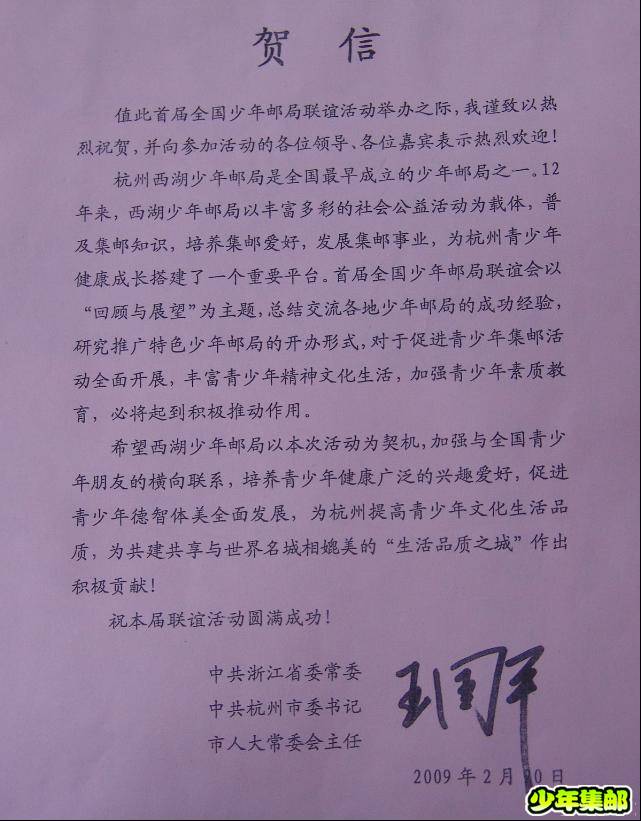 贺 信
值此首届全国少年邮局联谊活动举办之际，我谨致以热
烈祝贺，并向参加活动的各位领导、各位嘉宾表示热烈欢迎！
杭州西湖少年邮局是全国最早成立的少年邮局之一。12
年来，西湖少年邮局以丰富多彩的社会公益活动为载体，普
及集邮知识，培养集邮爱好，发展集邮事业，为杭州青少年
健康成长搭建了一个重要平台。首届全国少年邮局联谊会以
“回顾与展望”为主题，总结交流各地少年邮局的成功经验，
研究推广特色少年邮局的开办形式，对于促进青少年集邮活
动全面开展，丰富青少年精神文化生活，加强青少年素质教
育，必将起到积极推动作用。
希望西湖少年邮局以本次活动为契机，加强与全国青少
年朋友的横向联系，培养青少年健康广泛的兴趣爱好，促进
青少年德智体美全面发展，为杭州提高青少年文化生活品
质，为共建共享与世界名城相媲美的“生活品质之城”作出
积极贡献！
祝本届联谊活动圆满成功！
中共浙江省委常委
中共杭州市委书记
市人大常委会主任
王国平
2009 年 2 月 日
少年集邮